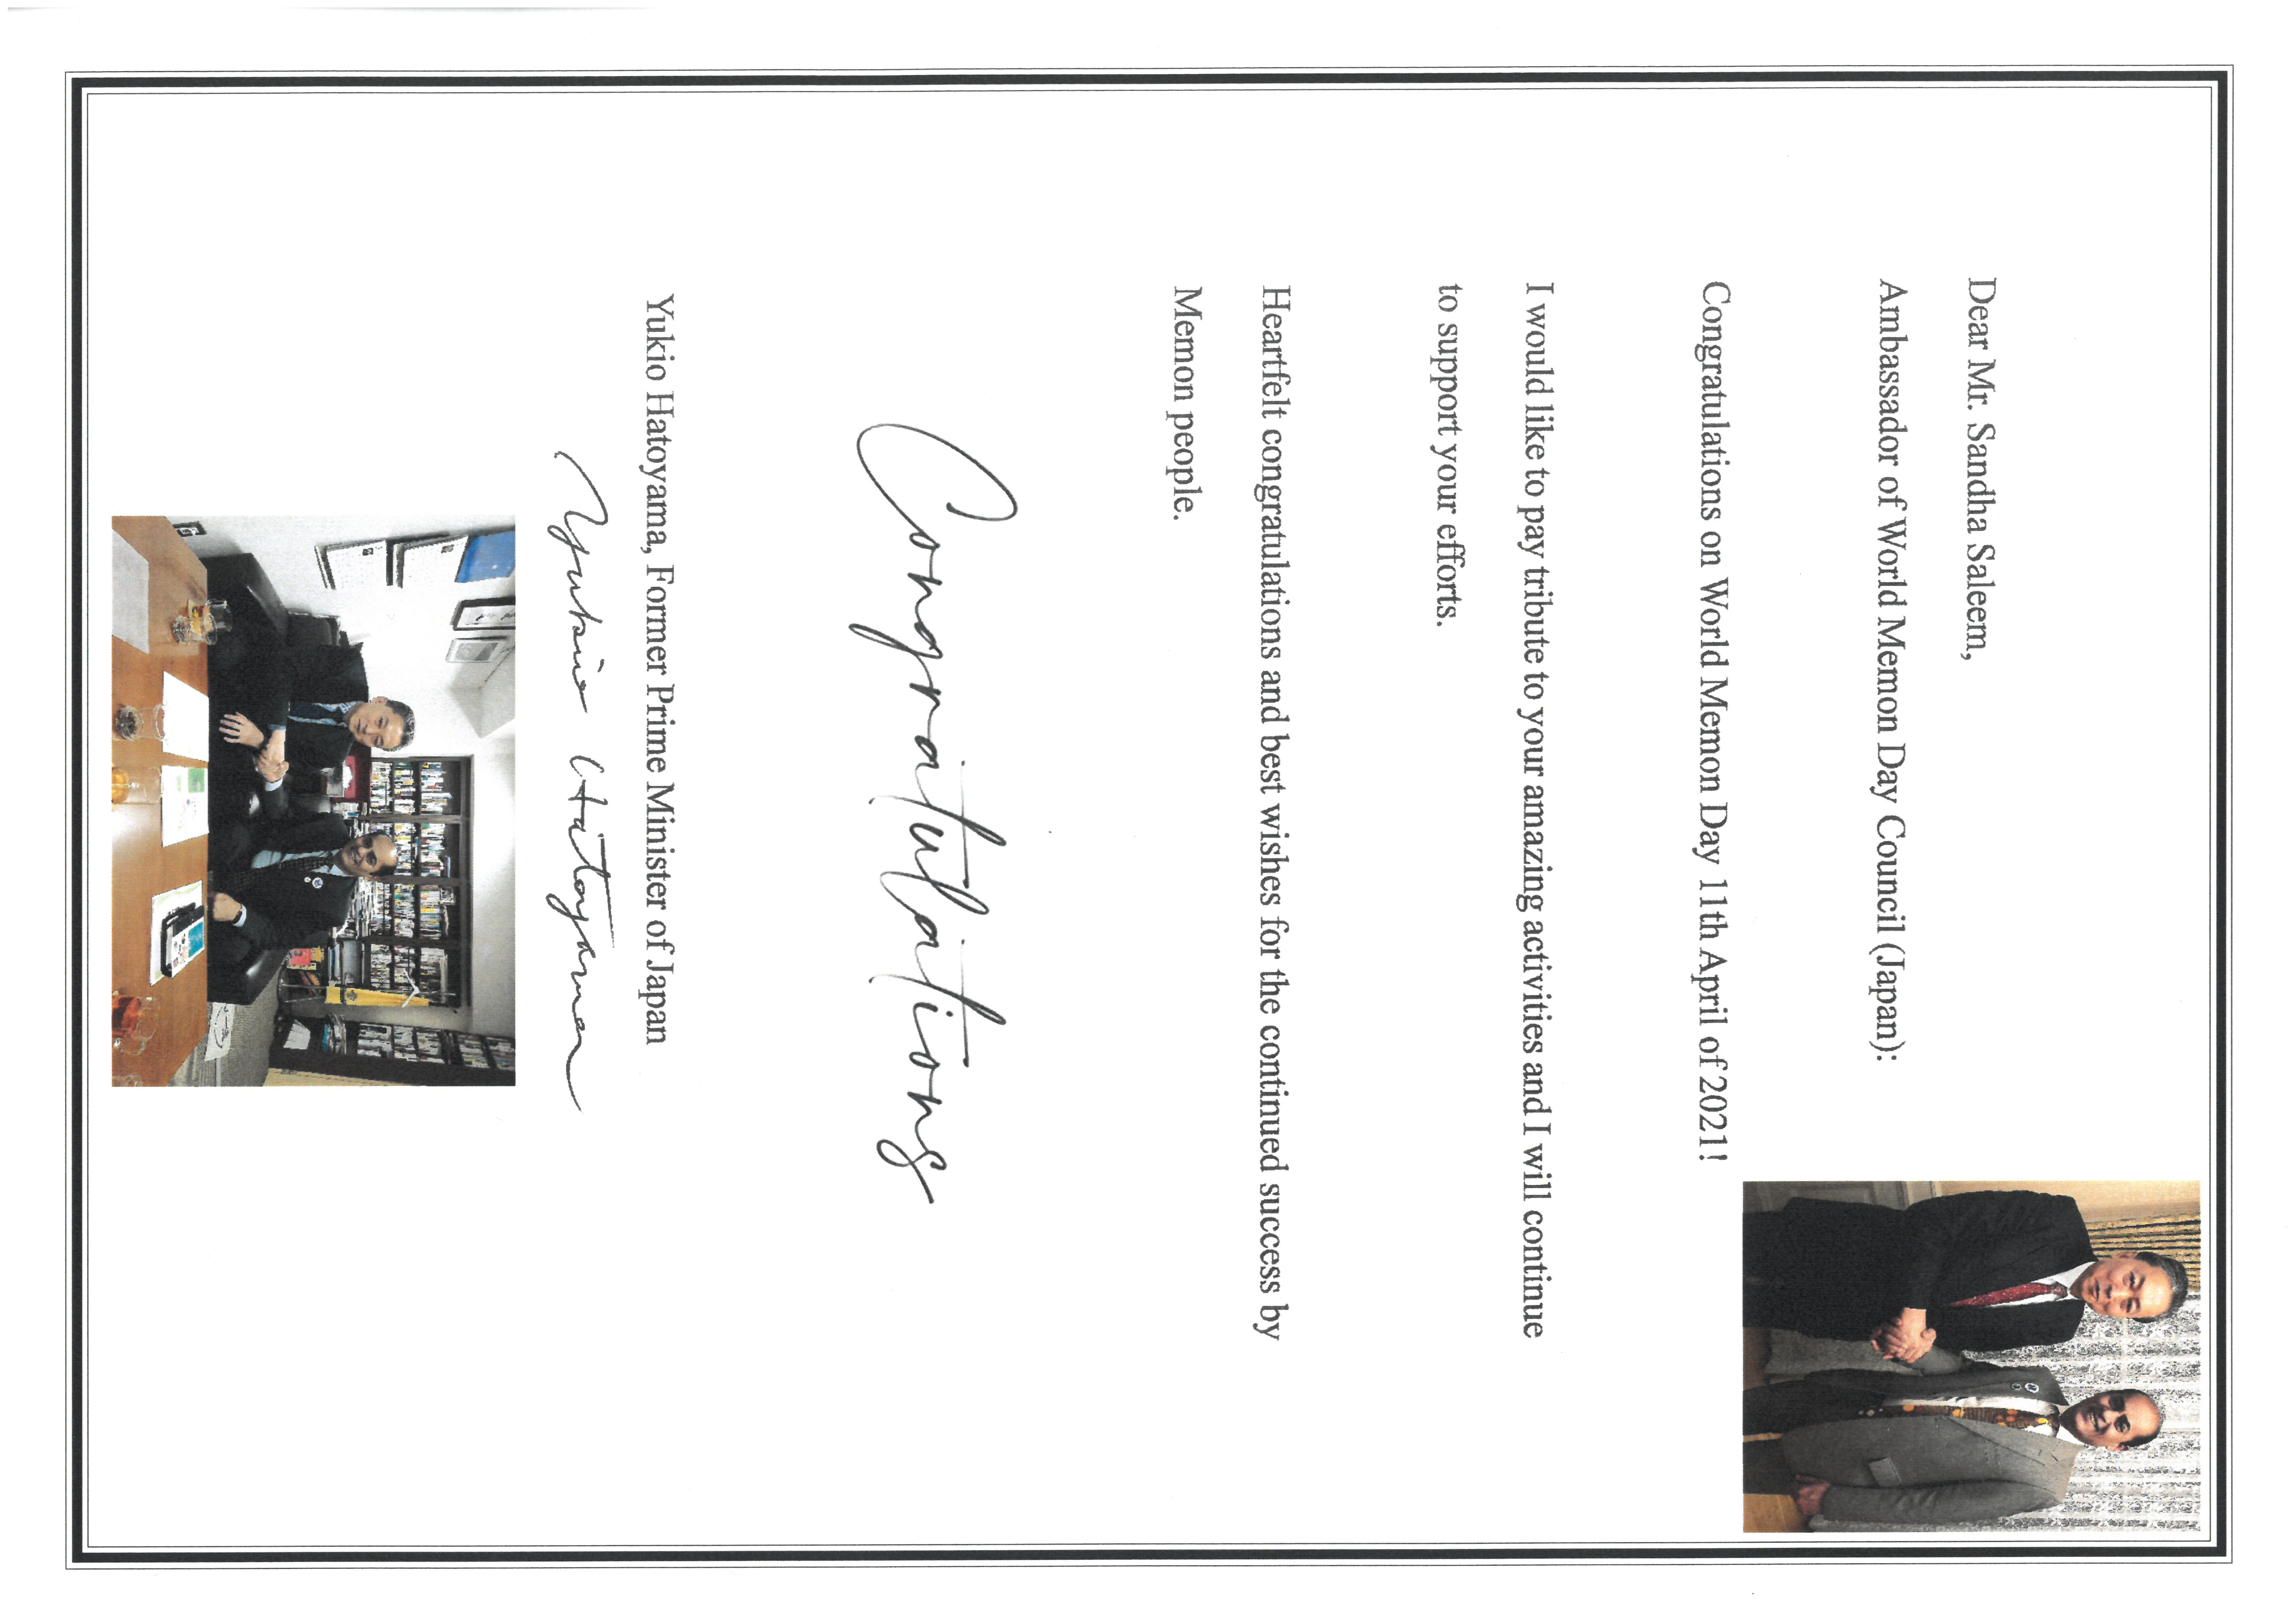 Dear Mr. Sandha Saleem,
Ambassador of World Memon Day Council (Japan):
Congratulations on World Memon Day 11th April of 2021!
I would like to pay tribute to your amazing activities and I will continue
to support your efforts.
Heartfelt congratulations and best wishes for the continued success by
Memon people.
Congratulations
Yukio Hatoyama, Former Prime Minister of Japan
Yukio Hatoyama